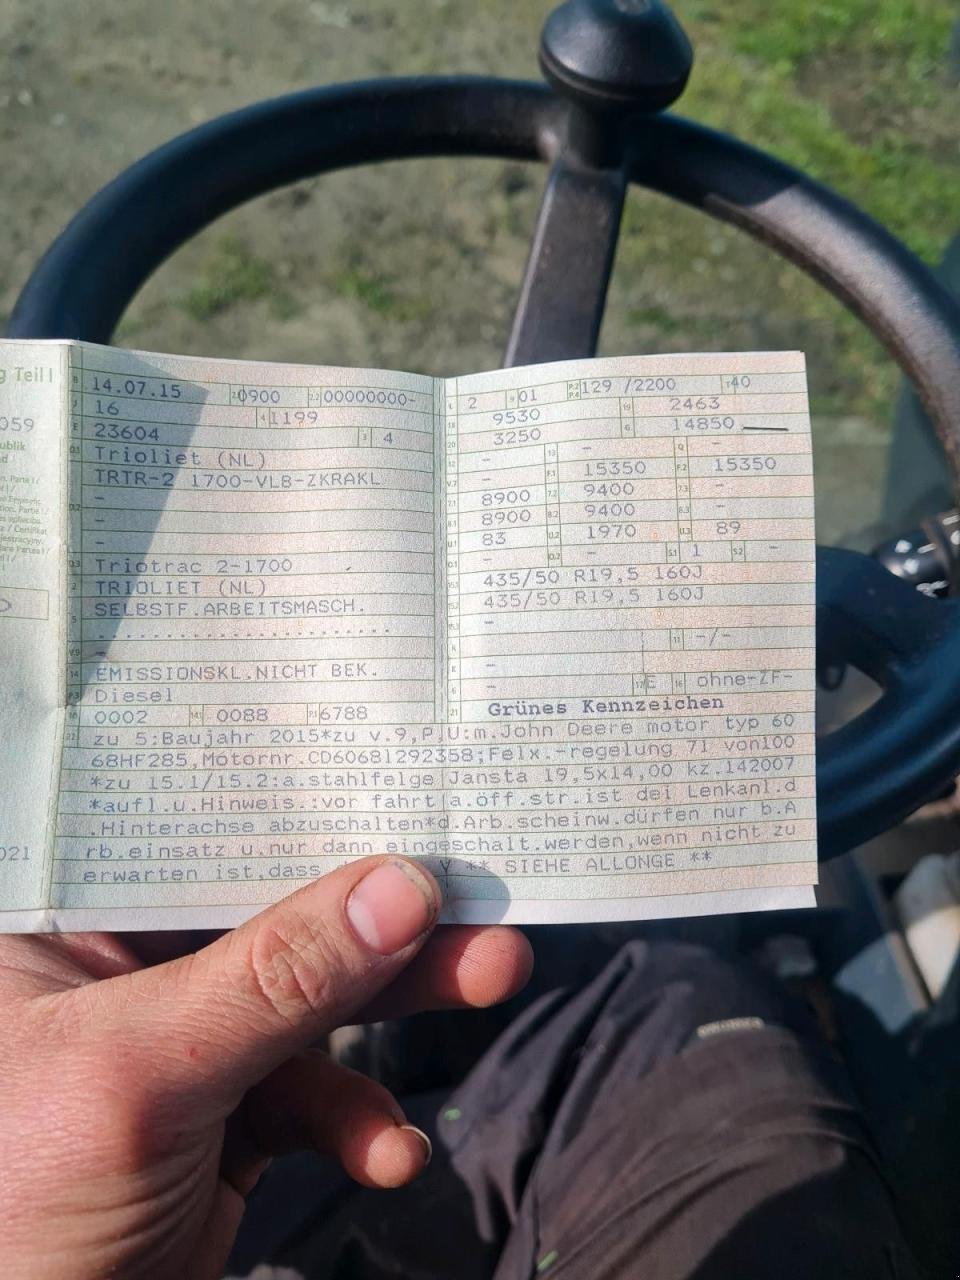 g Teil I
059
021
B 14.07.15 2.1 0900 2.2 00000000-
J 16 4 1199
E 23604 3 4
D.1 Trioliet (NL)
TRTR-2 1700-VLB-ZKRAKL
D.2 -
-
D.3 Triotrac 2-1700
2 TRIOLIET (NL)
5 SELBSTF.ARBEITSMASCH.
V.9 -
14 EMISSIONSKL.NICHT BEK.
P.3 Diesel
10 0002 14.1 0088 P.1 6788
L 2 9 01 P.2 P.4 129 /2200 T 40
18 9530 19 2463
20 3250 G 14850
12 - 13 - Q -
V.7 - F.1 15350 F.2 15350
7.1 8900 7.2 9400 7.3 -
8.1 8900 8.2 9400 8.3 -
U.1 83 U.2 1970 U.3 89
O.1 - O.2 - S.1 1 S.2 -
15.1 435/50 R19,5 160J
15.2 435/50 R19,5 160J
15.3 -
R 11 -/-
K -
6 - 17 E 16 ohne-ZF-
21 Grünes Kennzeichen
22 zu 5:Baujahr 2015*zu v.9,P,U:m.John Deere motor typ 60
68HF285,Motornr.CD6068L292358;Felx.-regelung 71 von100
*zu 15.1/15.2:a.stahlfelge Jansta 19,5x14,00 kz.142007
*aufl.u.Hinweis.:vor fahrt a.öff.str.ist dei Lenkanl.d
.Hinterachse abzuschalten*d.Arb.scheinw.dürfen nur b.A
rb.einsatz u.nur dann eingeschalt.werden,wenn nicht zu
erwarten ist,dass ** SIEHE ALLONGE **